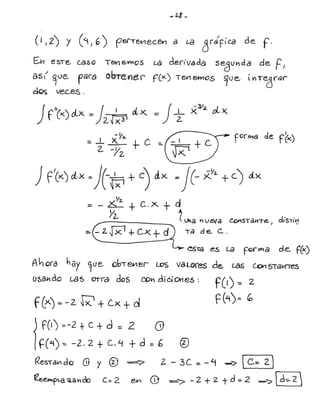 - 28 -
(1,2) y (4,6) pertenecen a la gráfica de f.
En este caso tenemos la derivada segunda de f,
así que para obtener f(x) tenemos que integrar
dos veces.
∫ f''(x) dx = ∫ 1/(2√x³) dx = ∫ 1/2 x^(-3/2) dx
= 1/2 x^(-1/2)/(-1/2) + C = -1/√x + C → forma de f'(x)
∫ f'(x) dx = ∫(-1/√x + C) dx = ∫(-x^(-1/2) + C) dx
= - x^(1/2)/(1/2) + C.x + d
una nueva constante, distin
ta de C.
= -2√x + Cx + d
esta es la forma de f(x)
Ahora hay que obtener los valores de las constantes
usando las otra dos condiciones: f(1) = 2
f(x) = -2√x + Cx + d f(4) = 6
{ f(1) = -2 + C + d = 2 ①
f(4) = -2.2 + C.4 + d = 6 ②
Restando ① y ② ⟹ 2 - 3C = -4 ⟹ C = 2
Reemplazando C=2 en ① ⟹ -2 + 2 + d = 2 ⟹ d = 2